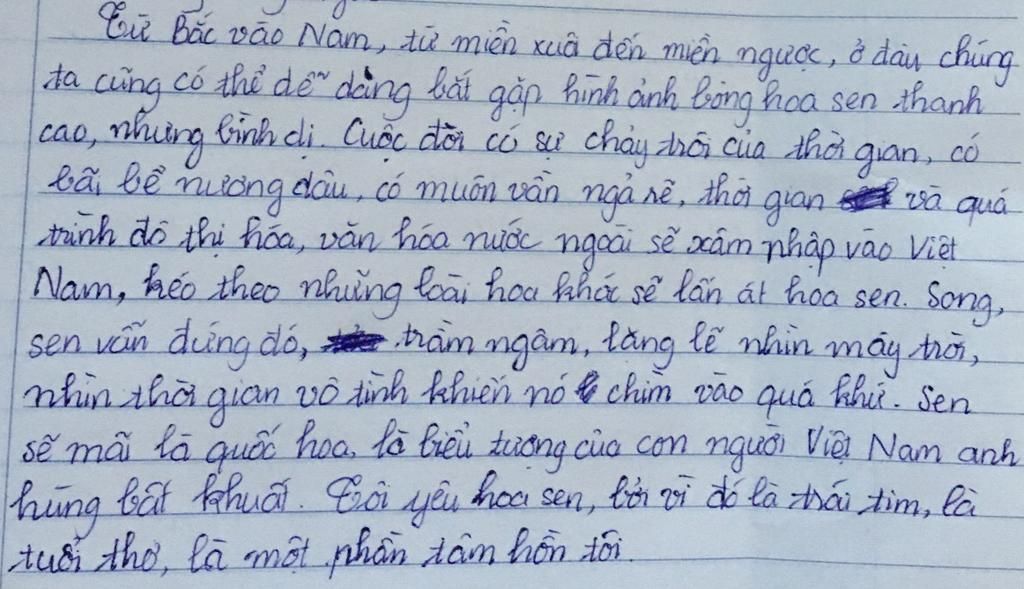 Từ Bắc vào Nam, từ miền xuôi đến miền ngược, ở đâu chúng
ta cũng có thể dễ dàng bắt gặp hình ảnh bông hoa sen thanh
cao, nhưng bình dị. Cuộc đời có sự chảy trôi của thời gian, có
bãi bể nương dâu, có muôn vàn ngả rẽ, thời gian và quá
trình đô thị hóa, văn hóa nước ngoài sẽ xâm nhập vào Việt
Nam, kéo theo những loài hoa khác sẽ lấn át hoa sen. Song,
sen vẫn đứng đó, trầm ngâm, lặng lẽ nhìn mây trời,
nhìn thời gian vô tình khiến nó chìm vào quá khứ. Sen
sẽ mãi là quốc hoa, là biểu tượng của con người Việt Nam anh
hùng bất khuất. Tôi yêu hoa sen, bởi vì đó là trái tim, là
tuổi thơ, là một phần tâm hồn tôi.